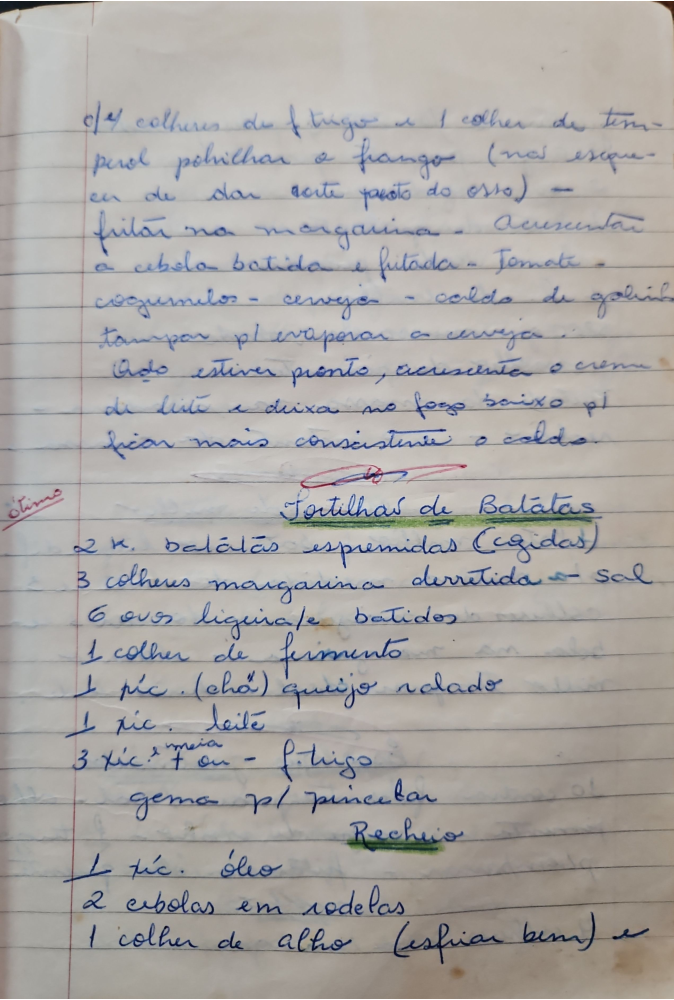 c/ 4 colheres de f. trigo e 1 colher de tem-
perol polvilhar o frango (não esque-
cer de dar corte perto do osso) -
fritar na margarina. Acrescentar
a cebola batida e fritada - Tomate -
cogumelos - cerveja - caldo de galinha
tampar p/ evaporar a cerveja.
Qdo estiver pronto, acrescenta o creme
de leite e deixa no fogo baixo p/
ficar mais consistente o caldo.
ótimo
Tortilhas de Batátas
2 K. batátás espremidas (cozidas)
3 colheres margarina derretida - sal
6 ovos ligeira/e batidos
1 colher de fermento
1 xíc. (chá) queijo ralado
1 xic. leite
3 xíc. e meia + ou - f. trigo
gema p/ pincelar
Recheio
1 xíc. óleo
2 cebolas em rodelas
1 colher de alho (esfriar bem) e